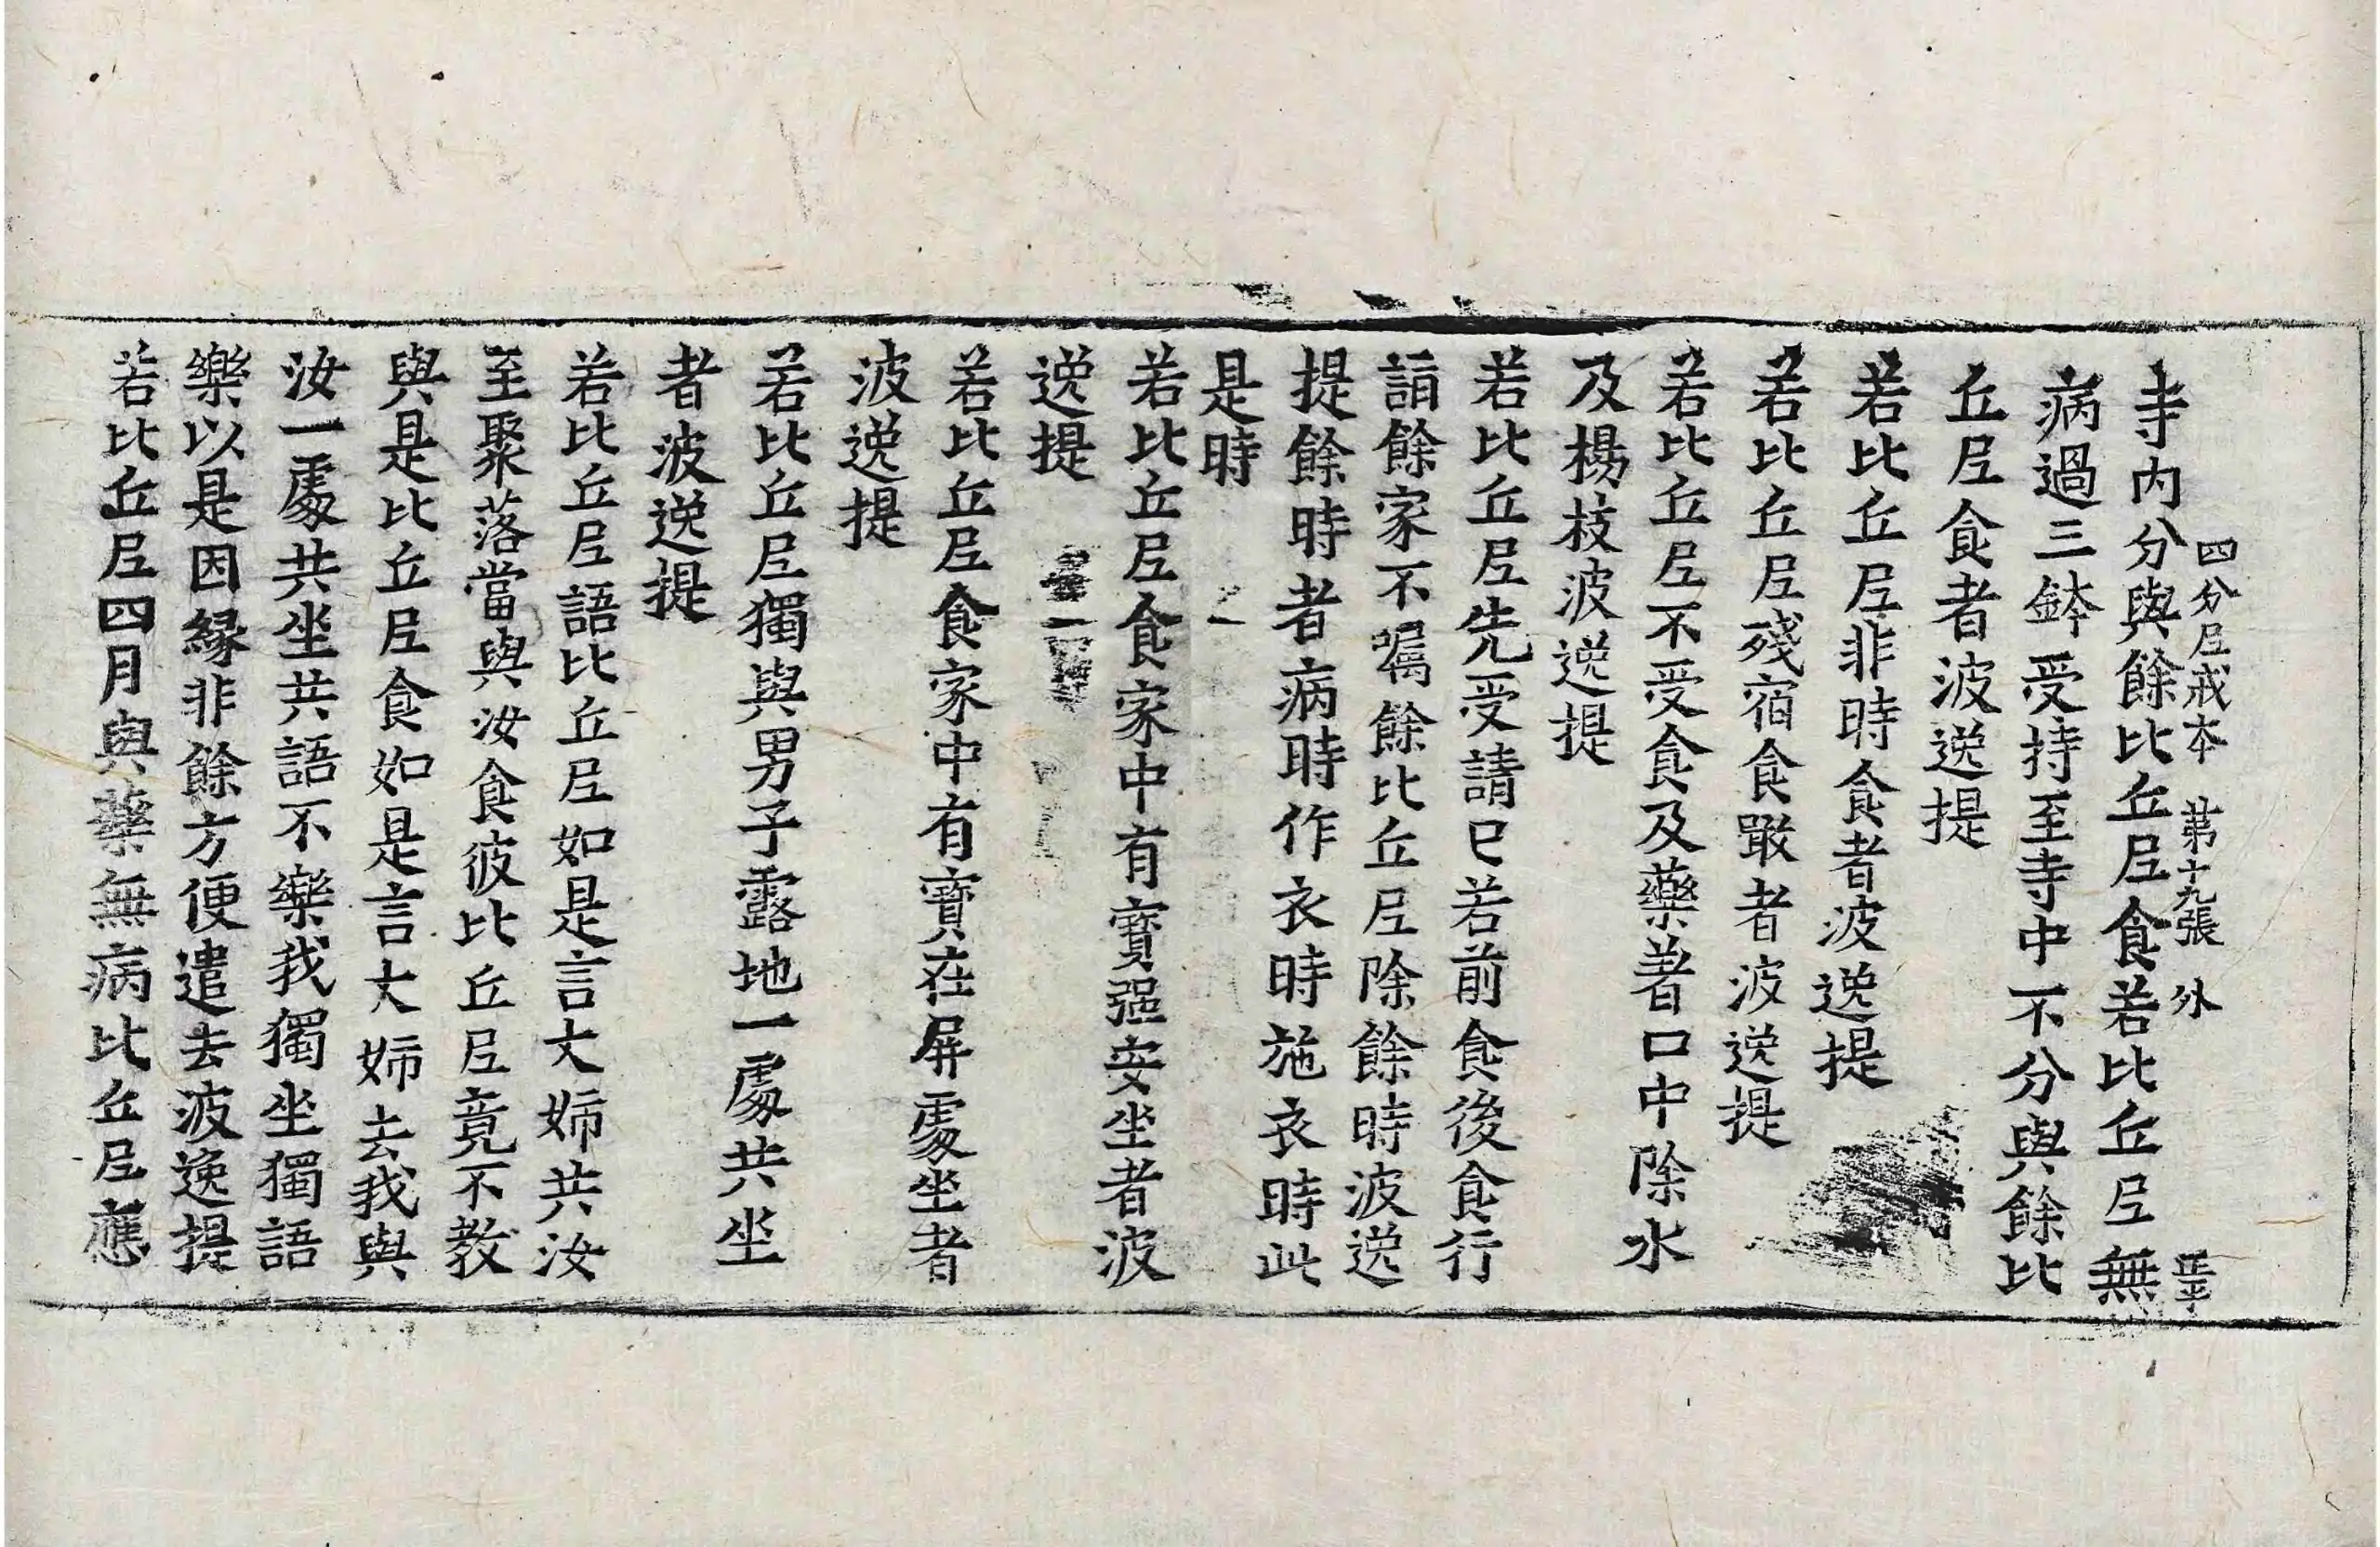 四分尼戒本 第十九張 外
寺内分與餘比丘尼食若比丘尼無
病過三鉢受持至寺中不分與餘比
丘尼食者波逸提
若比丘尼非時食者波逸提
若比丘尼殘宿食噉者波逸提
若比丘尼不受食及藥著口中除水
及楊枝波逸提
若比丘尼先受請已若前食後食行
詣餘家不囑餘比丘尼除餘時波逸
提餘時者病時作衣時施衣時此
是時
若比丘尼食家中有寶強安坐者波
逸提
若比丘尼食家中有寶在屏處坐者
波逸提
若比丘尼獨與男子露地一處共坐
者波逸提
若比丘尼語比丘尼如是言大姉共汝
至聚落當與汝食彼比丘尼竟不教
與是比丘尼食如是言大姉去我與
汝一處共坐共語不樂我獨坐獨語
樂以是因縁非餘方便遣去波逸提
若比丘尼四月與藥無病比丘尼應